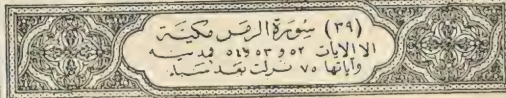 (٣٩) سورة الزمر مكية
الا الايات ٥٢ و ٥٣ و ٥٤ فمدنية
وآياتها ٧٥ نزلت بعد سبأ